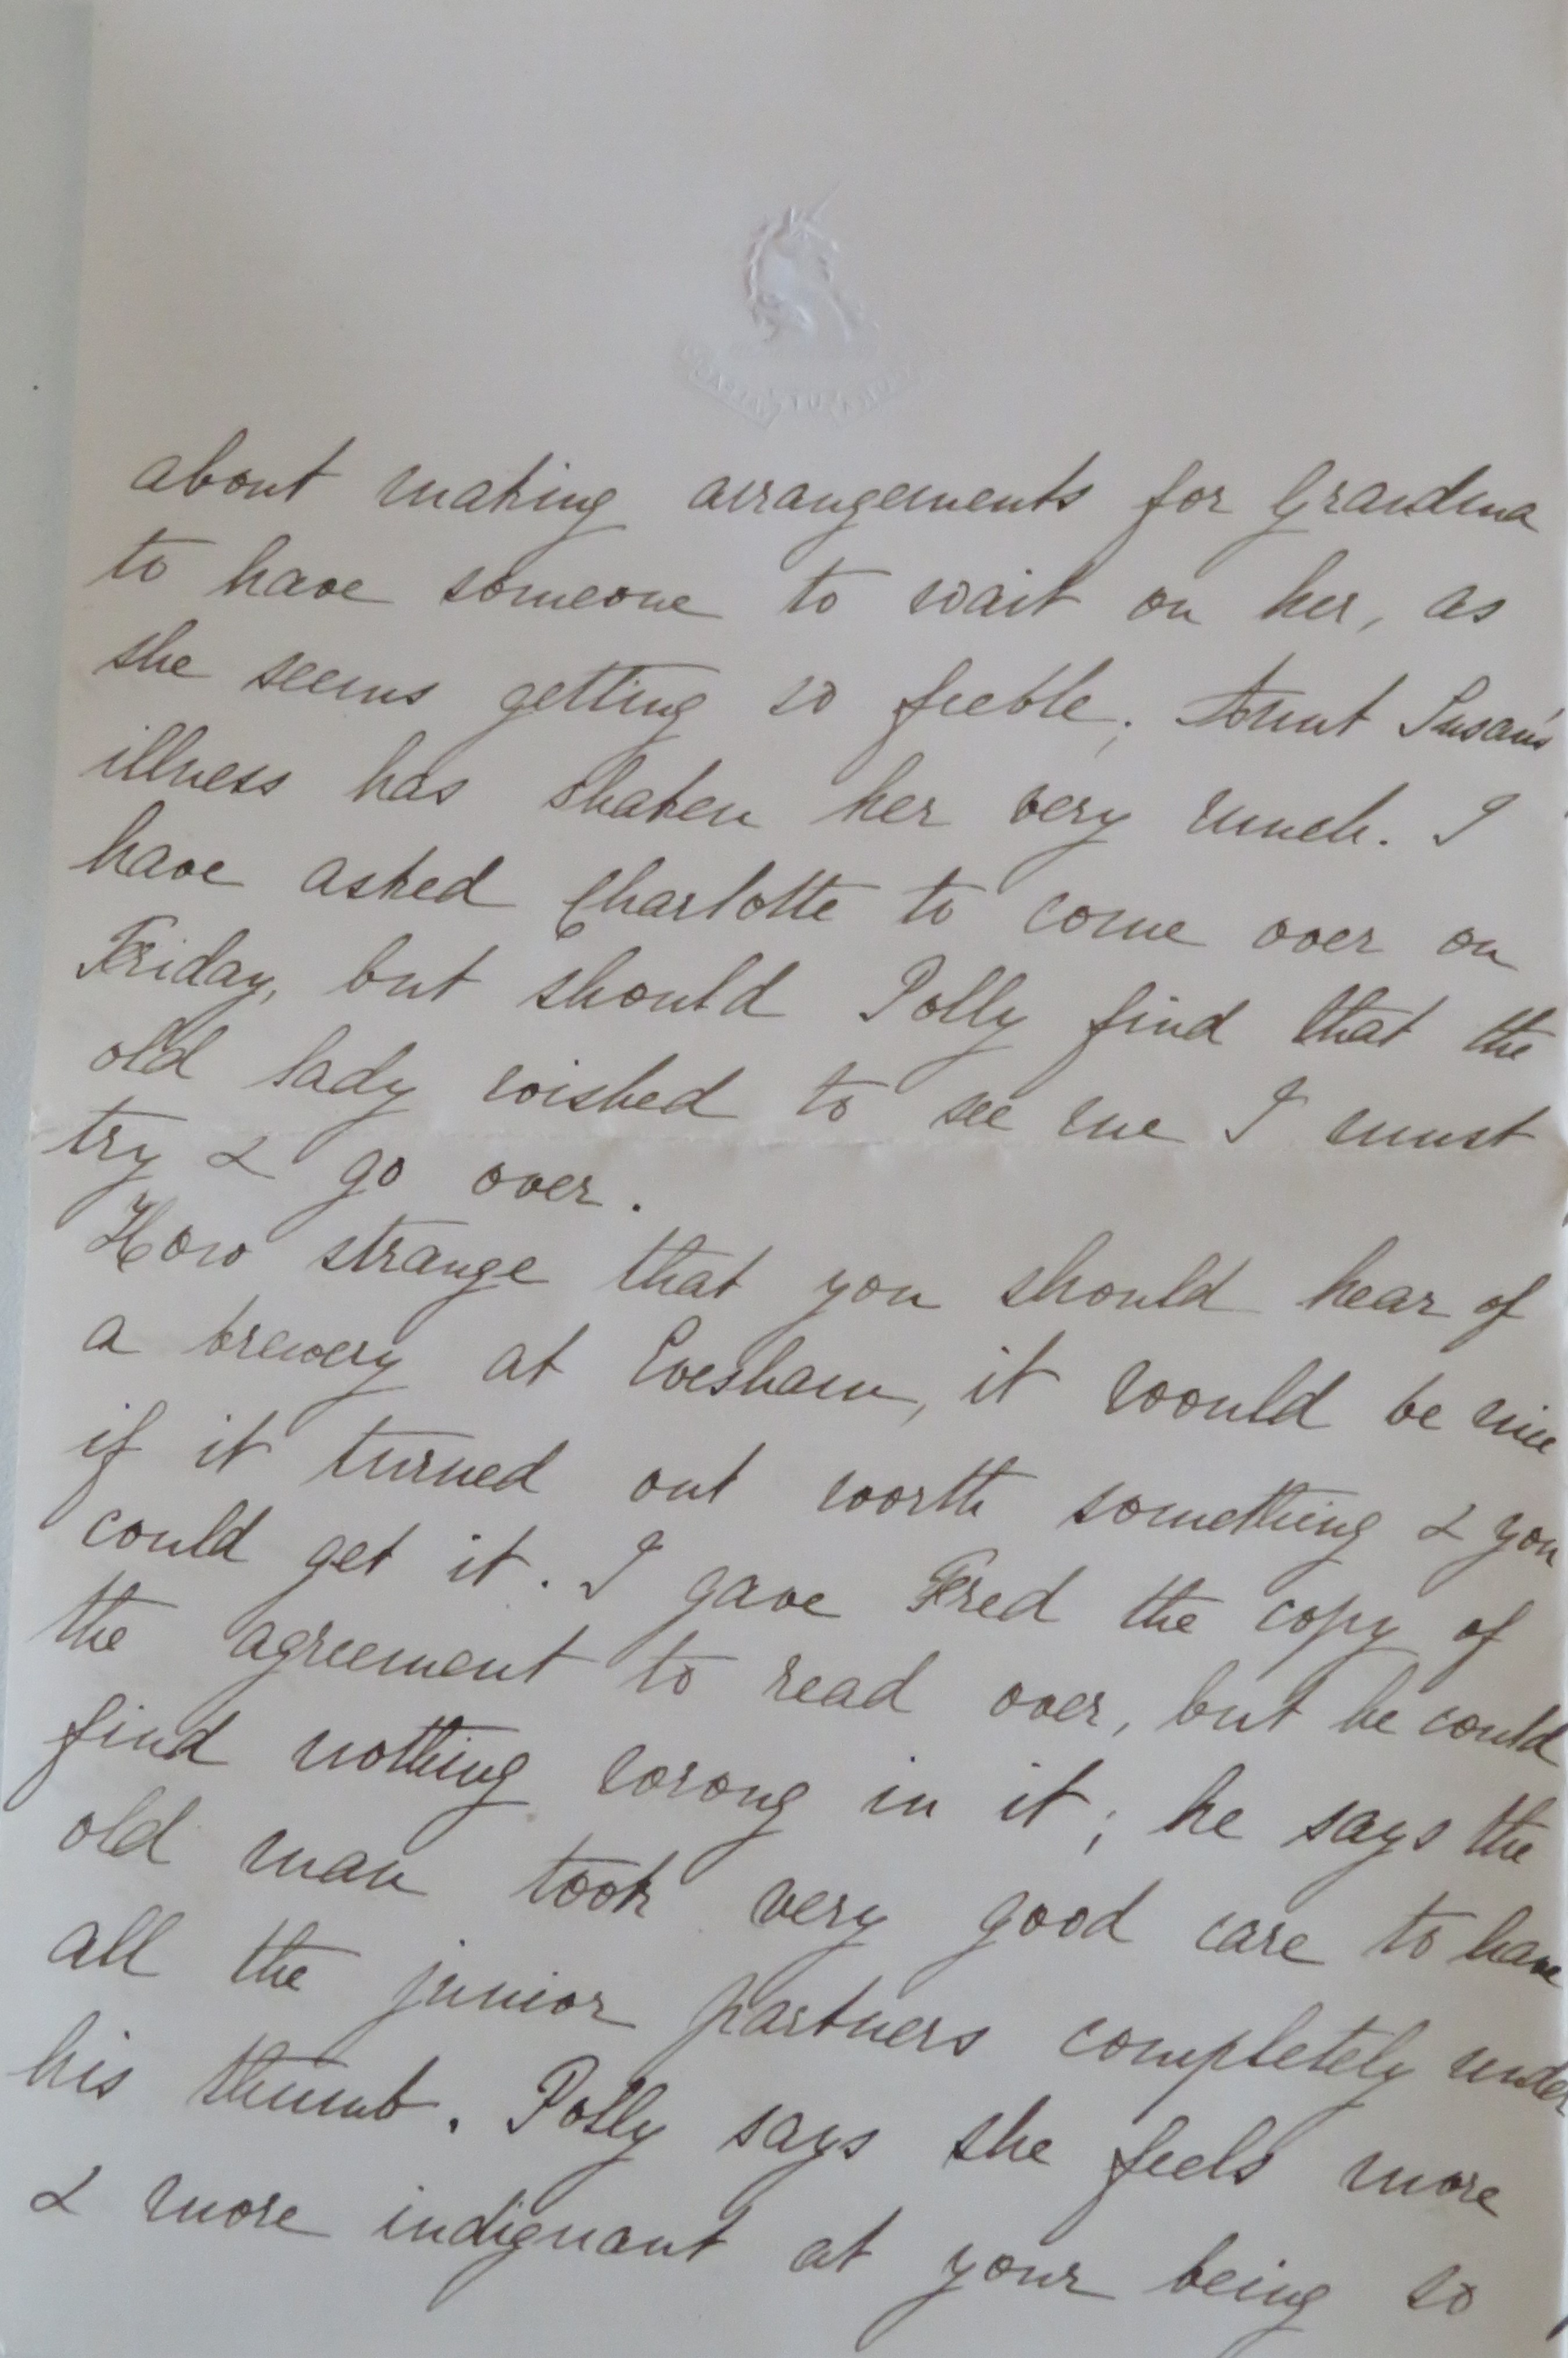 about making arrangements for Grandma
to have someone to wait on her, as
she seems getting so feeble; Aunt Susan's
illness has shaken her very much. I
have asked Charlotte to come over on
Friday, but should Polly find that the
old lady wished to see me I must
try & go over.
How strange that you should hear of
a brewery at Evesham, it would be nice
if it turned out worth something & you
could get it. I gave Fred the copy of
the agreement to read over, but he could
find nothing wrong in it; he says the
old man took very good care to have
all the junior partners completely under
his thumb. Polly says she feels more
& more indignant at your being so